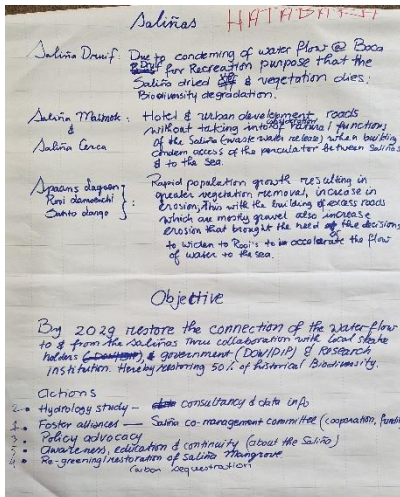 Saliñas
Saliña Druif: Due to condeming of water flow @ Boca
Druif for Recreation purpose that the
Saliña dried & vegetation dies:
Biodiversity degradation.
Saliña Malmok : Hotel & urban development, roads
& without taking into consideration natural functions
Saliña Cerca of the Saliña (waste water release) when building
condem access of the perculator between Saliñas
& to the sea.
Spaans lagoen Rapid population growth resulting in
Rooi damochi : greater vegetation removal, increase in
Santo dango erosion, this with the building of excess roads
which are mostly gravel also increase
erosion that brought the need of the decisions
to widen to Rooi's to accelerate the flow
of water to the sea.
Objective
By 2029 restore the connection of the waterflow
to & from the Saliñas thru collaboration with local stake
holders, & government (DOW/DIP) & Research
institution. Hereby restoring 50% of historical Biodiversity.
Actions
2. • Hydrology study — consultancy & data info
1. • Foster alliances — Saliña co-management committee (cooperation,
3. • Policy advocacy
5 • Awareness, education & continuity (about the Saliña)
4 • Re-greening/restoration of Saliña Mangrove
carbon sequestration